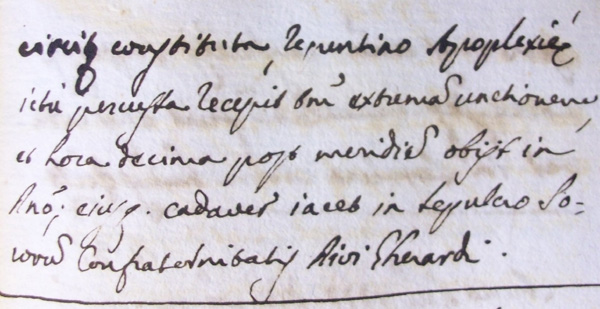 circiter constituta, repentino Apoplexiæ
ictu percussa recepit tm̄ extremā unctionem
et hora decima post meridiē obijt in
Dnō; eiusq. cadaver iacet in sepulcro So=
rorū Confraternitatis Divi Gherardi.